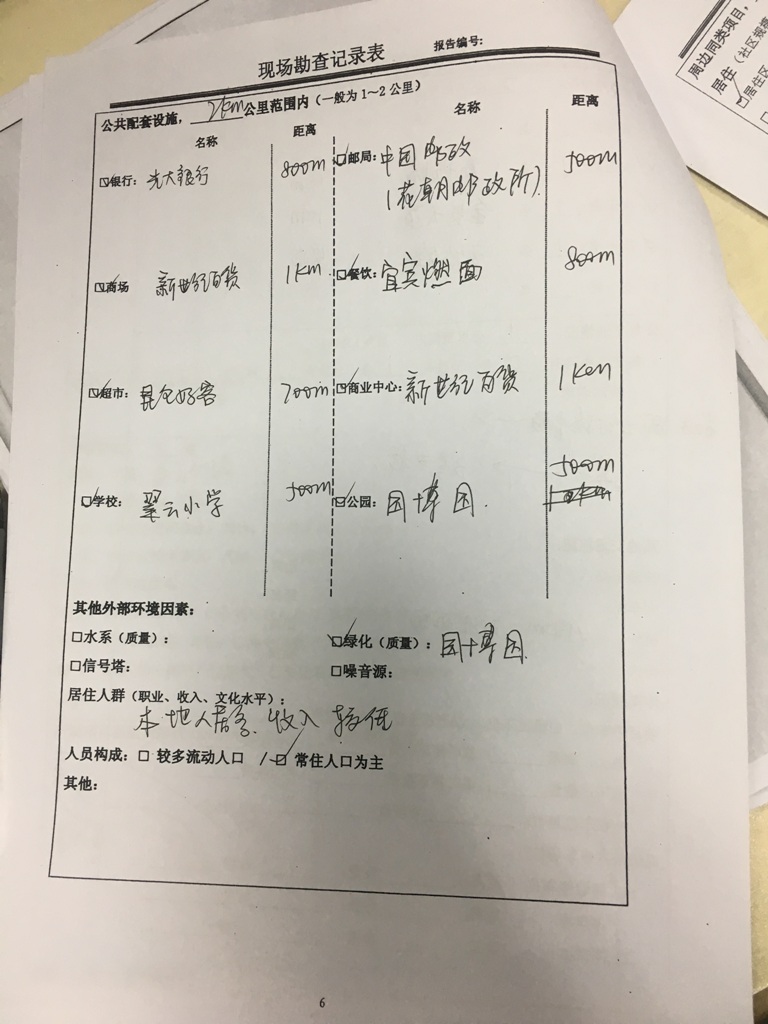 现场勘查记录表
报告编号:
公共配套设施, 2km公里范围内（一般为1~2公里）
名称 距离 名称 距离
银行: 光大银行 800m 邮局: 中国邮政 500m
(花朝邮政所)
商场 新世纪百货 1km 餐饮: 宜宾燃面 800m
超市: 昆仑好客 700m 商业中心: 新世纪百货 1km
学校: 翠云小学 500m 公园: 园博园. 500m
其他外部环境因素:
□水系（质量）: 绿化（质量）: 园博园
□信号塔: □噪音源:
居住人群（职业、收入、文化水平）:
本地人居多, 收入较低
人员构成: □ 较多流动人口 / 常住人口为主
其他:
6
周边同类项目,
居住（社区规模
居住区